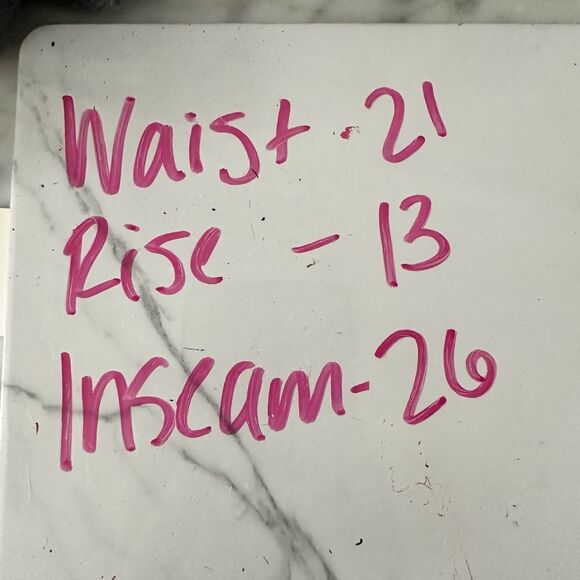 Waist - 21
Rise - 13
Inseam - 26